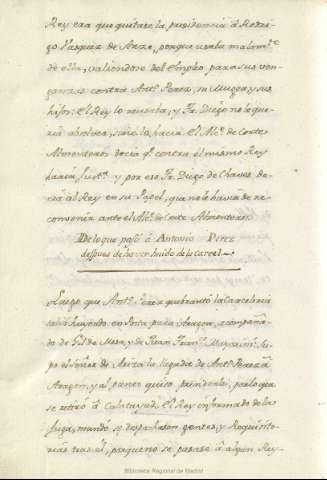 Rey era que quitase la presidencia á Rodri-
go Vazquez de Arze, porque usaba mal am.te
de ella, valiendose del Empleo para sus ven-
ganzas contra Ant.o Perez, su Muger y sus
hijos: El Rey lo reusaba, y Fr. Diego no le que-
ria absolver, sino lo hacia. El Alc.e de Corte
Almenteros decia q.e contra el mismo Rey
haria Just.a y por eso Fr. Diego de Chaves de-
cia al Rey en su Papel, que no le havia de re-
convenir ante el Alc.e de Corte Almenteros.
De lo que pasó á Antonio Perez
despues de haver huido de la carcel.
Luego que Ant.o Perez quebrantó la Carcel
salió huyendo en Posta para Aragon, acompaña-
do de Gil de Mesa, y de Juan Fran.co Mayorini, su-
po el Señor de Ariza la llegada de Ant.o Perez á
Aragon, y al punto quiso prenderle, por lo que
se retiró á Calatayud. El Rey informado de la
fuga, mandó y despacharon gentes, y Requisito-
rias tras él, porque no se pasase á algun Rey-
Biblioteca Regional de Madrid